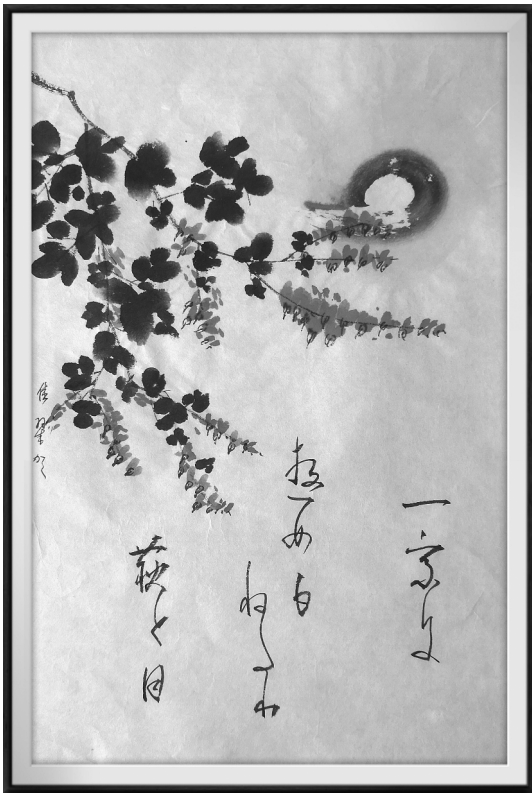 一家に
遊女も
ねたり
萩と月
佳翠かく